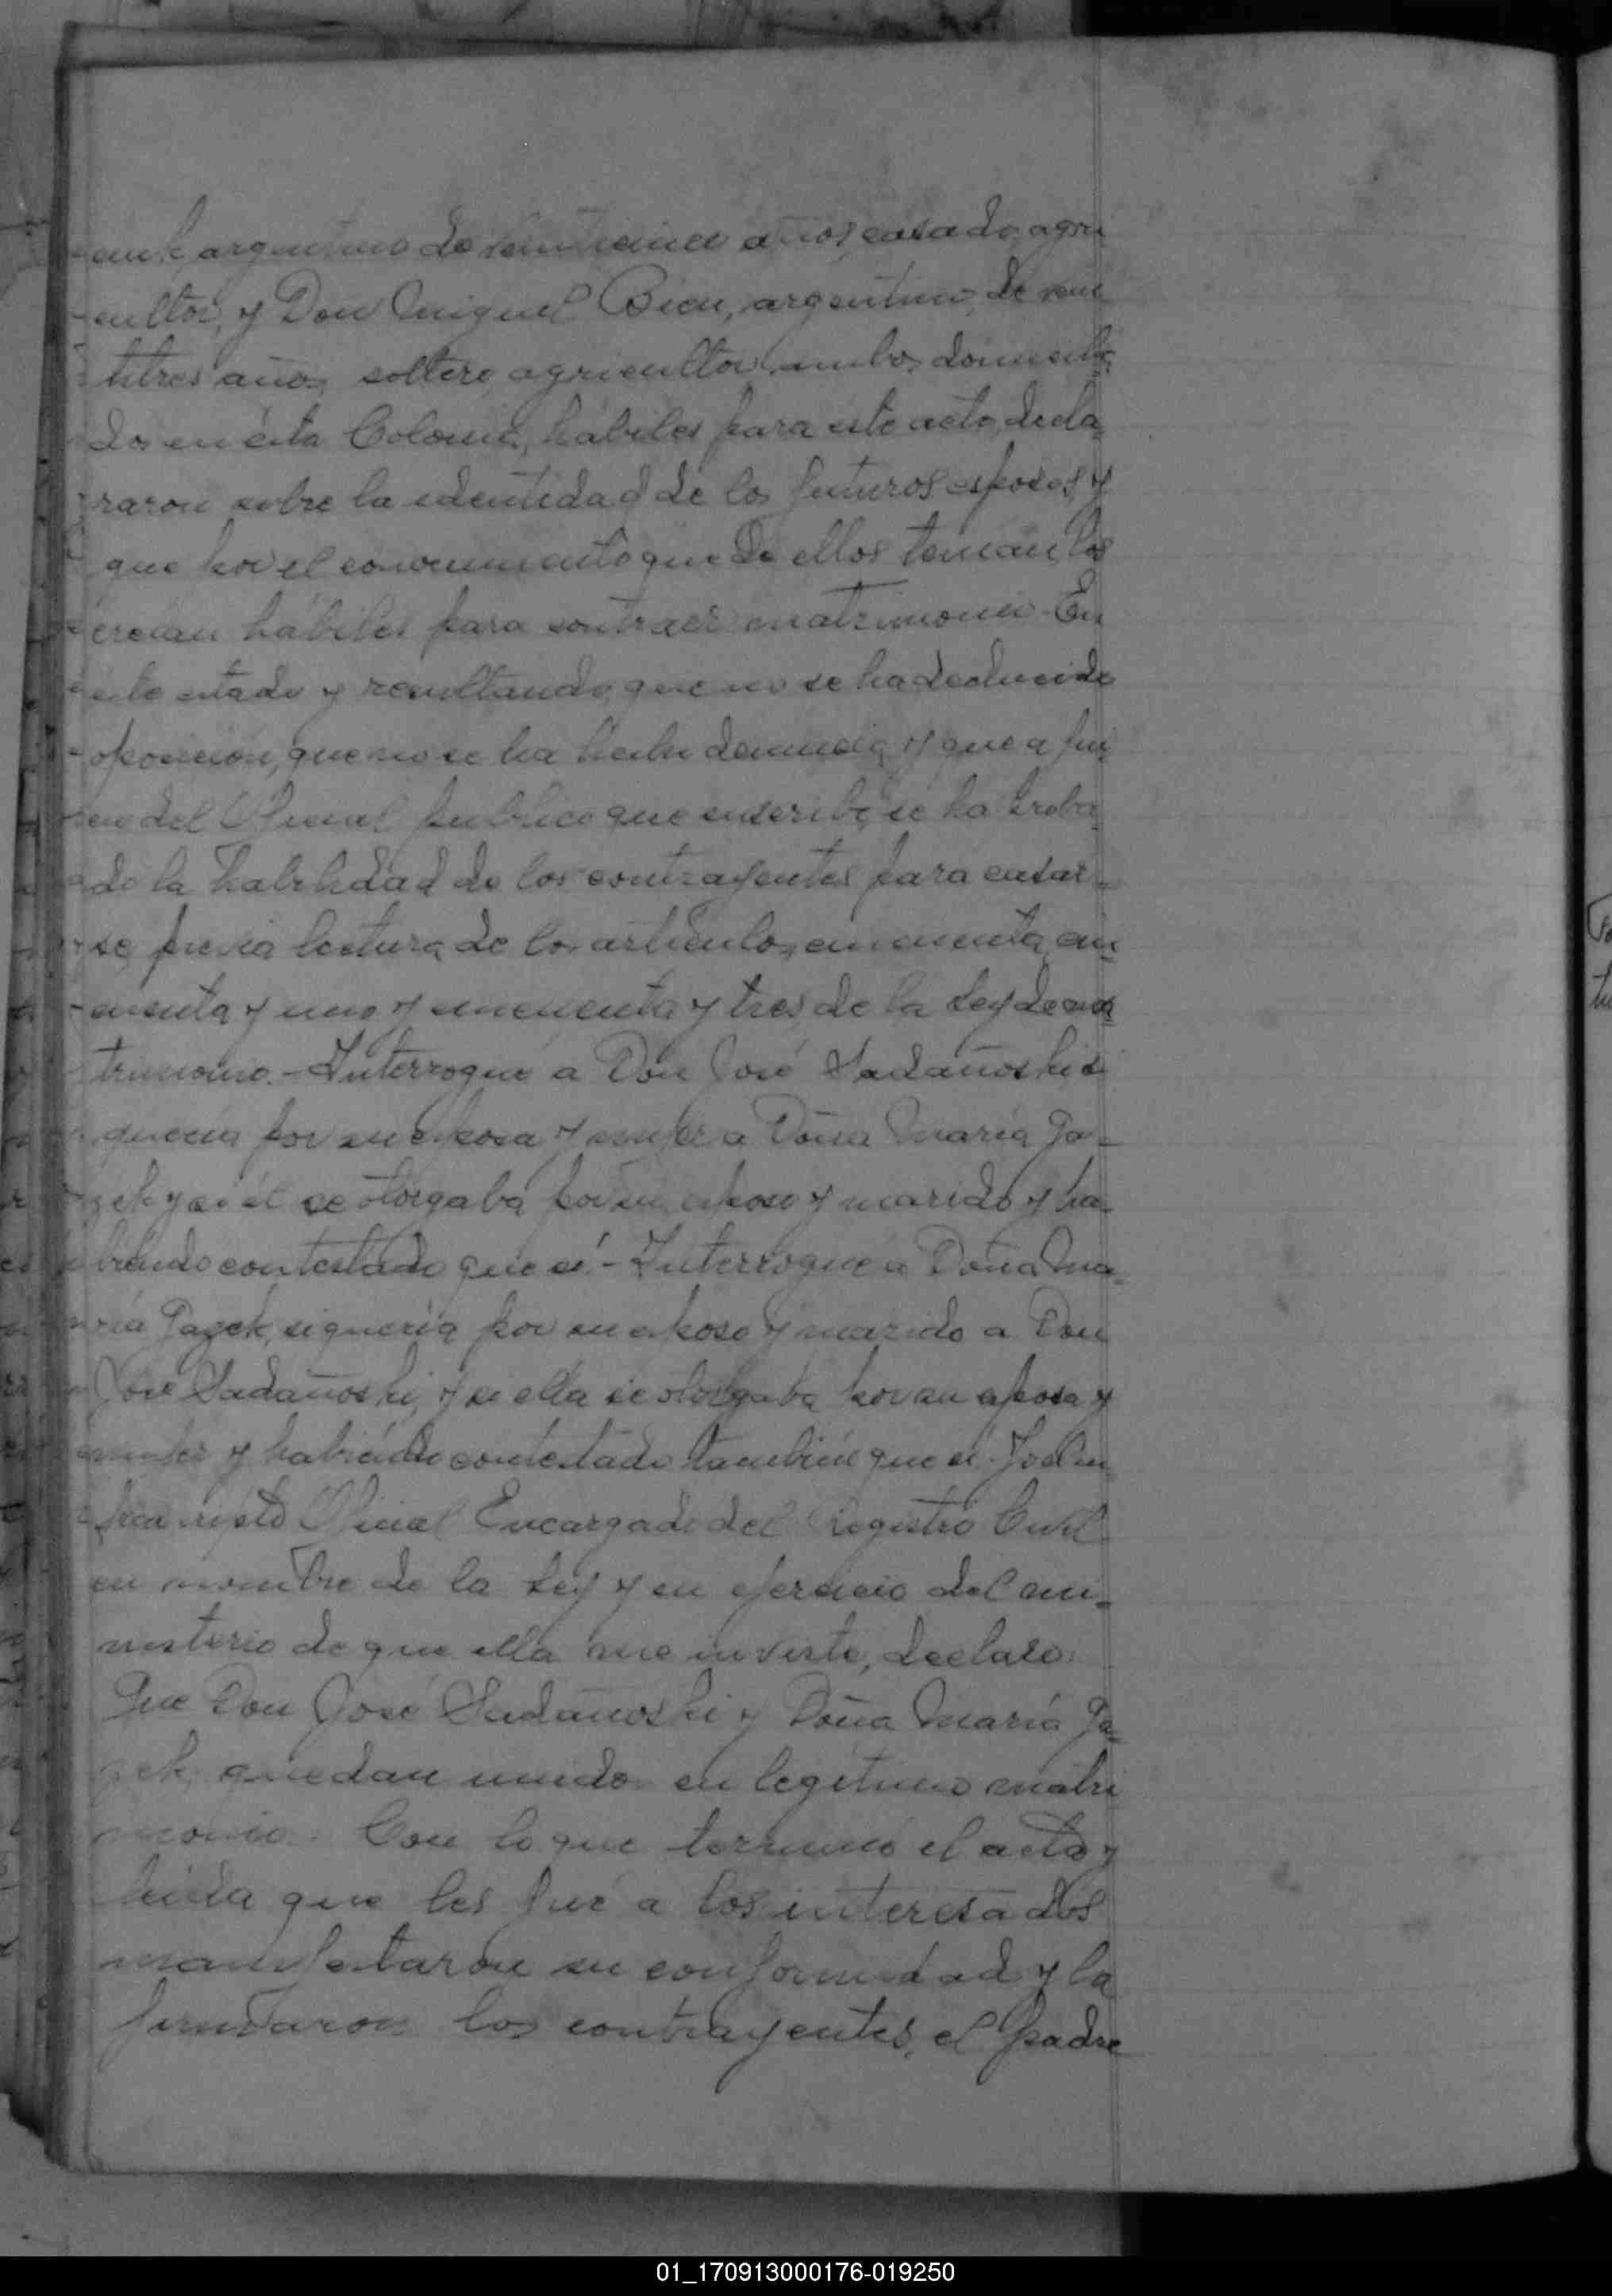 argentino de veinticinco años, casado, agri
cultor, y Don Miguel Bien, argentino, de vein
titres años, soltero, agricultor, ambos domicilia
dos en ésta Colonia, hábiles para este acto, decla
raron sobre la identidad de los futuros esposos, y
que por el conocimiento que de ellos tenian, los
creian hábiles para contraer matrimonio.- En
este estado y resultando, que no se ha deducido
oposicion, que no se ha hecho denuncia, y que a jui
cio del Oficial público que suscribe, se ha proba
do la habilidad de los contrayentes para casar-
se, previa lectura de los articulos cincuenta, cin
cuenta y uno y cincuenta y tres de la Ley de ma
trimonio.- Interrogué a Don José Sadañoski si
queria por su esposa y mujer a Doña María Ga-
zek y si él se otorgaba por su esposo y marido y ha-
biendo contestado que si.- Interrogué a Doña Ma-
ria Gazek, si queria por su esposo y marido a Don
José Sadañoski, y si ella se otorgaba por su esposa y
mujer y habiendo contestado también que si. Yo el in
frascripto Oficial Encargado del Registro Civil
en nombre de la Ley y en ejercicio del mi-
nisterio de que ella me inviste, declaro:
Que Don José Sadañoski y Doña María Ga-
zek, quedan unidos en legitimo matri
monio. Con lo que terminó el acto y
leida que les fué a los interesados
manifestaron su conformidad y la
firmaron los contrayentes, el padre
01_170913000176-019250